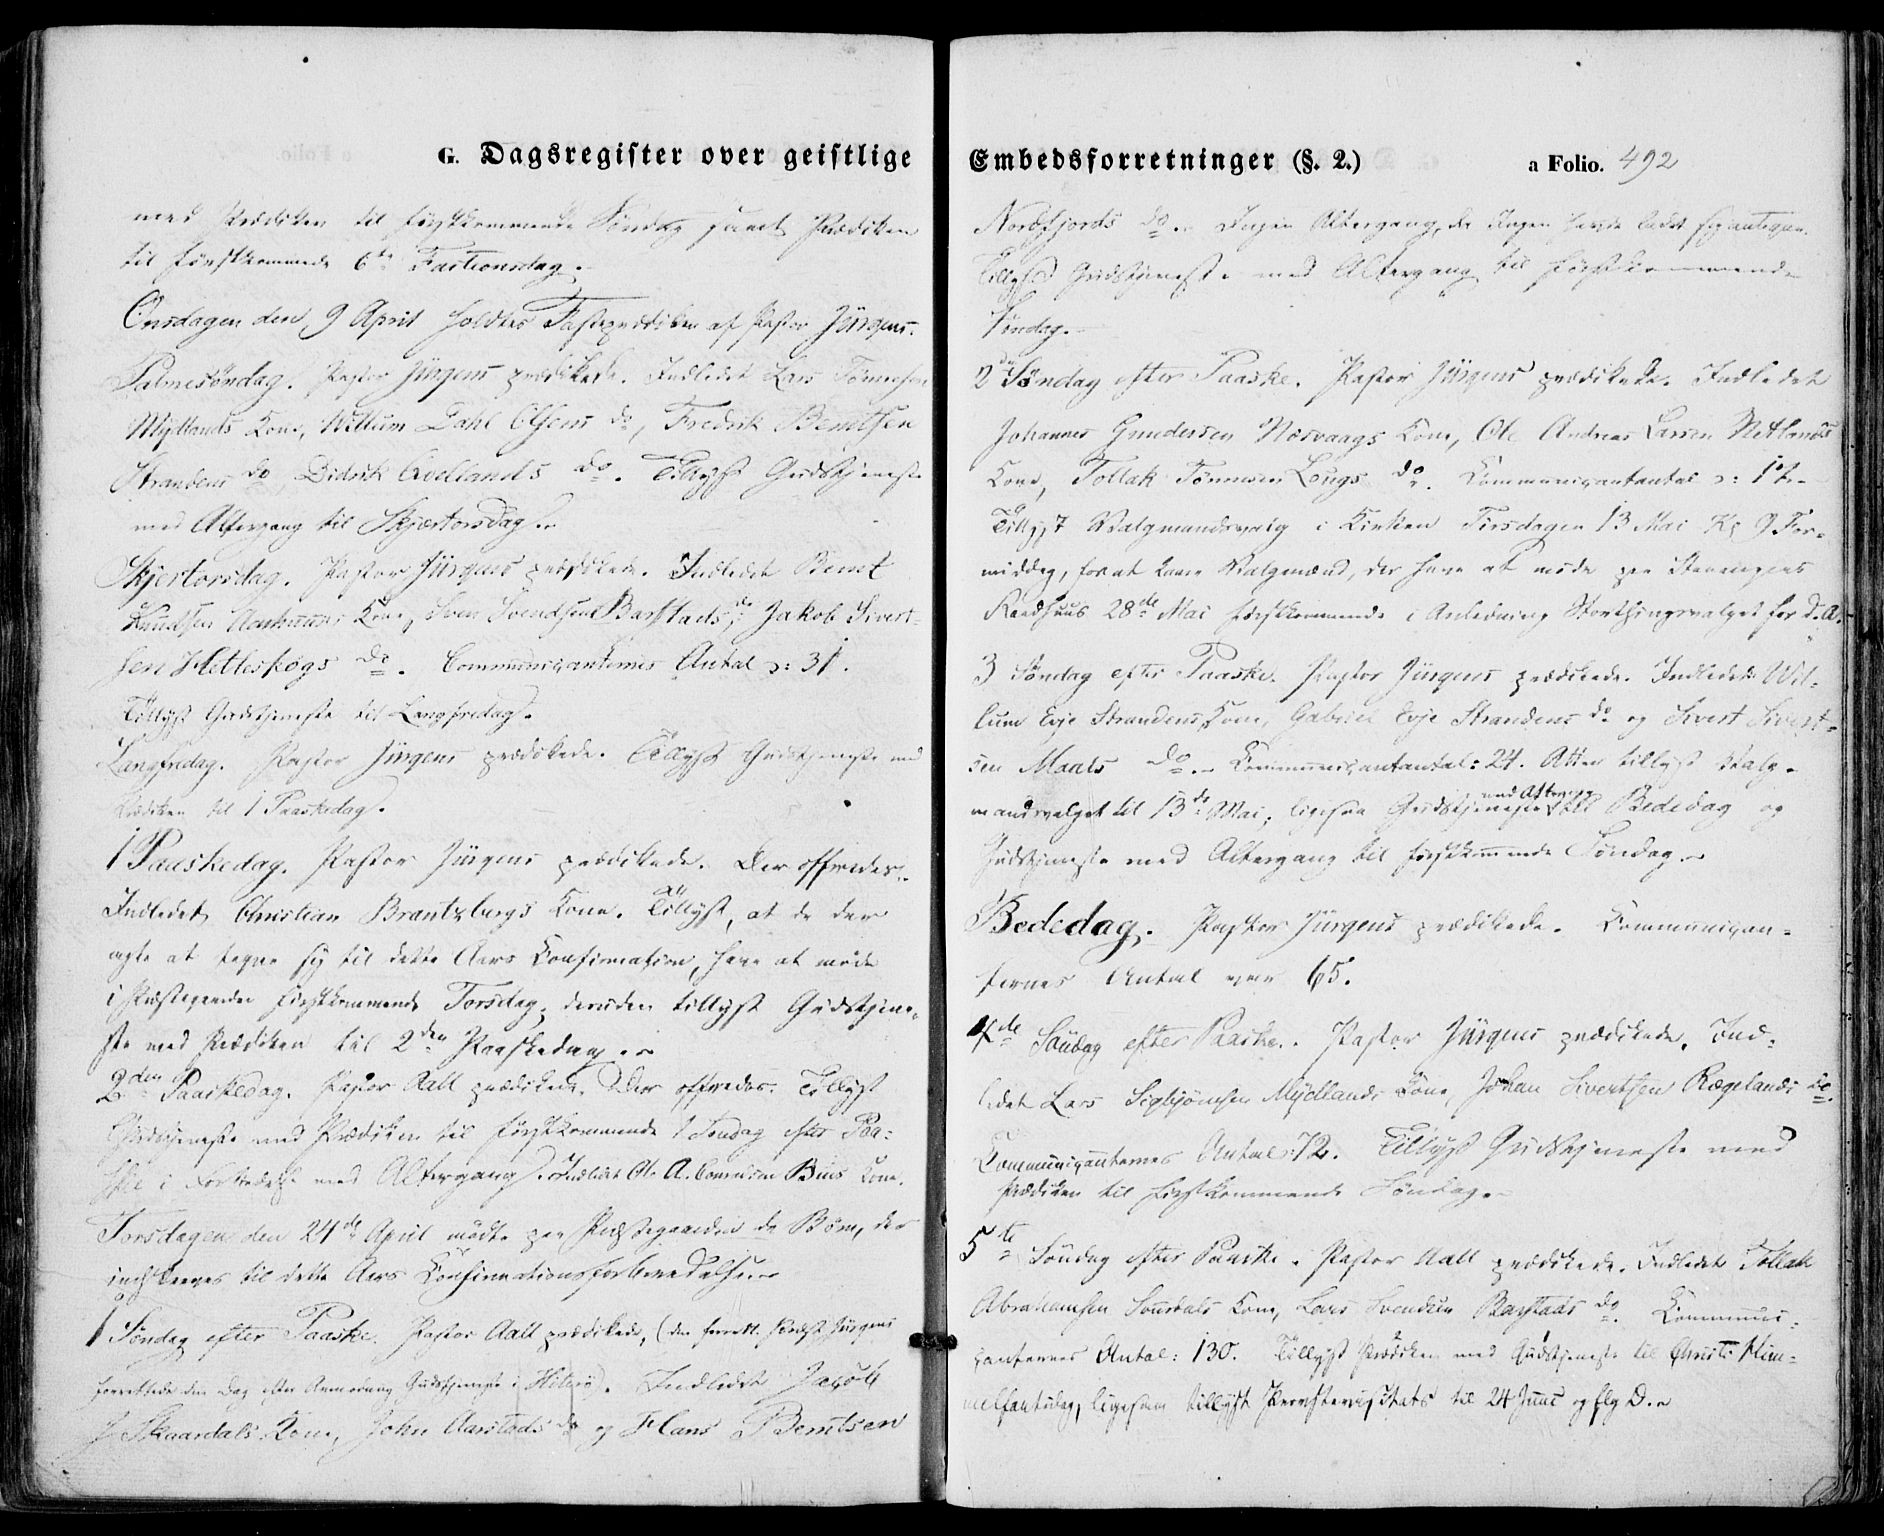 G. Dagsregister over geistlige
med Prædiken til førstkommende Søndag samt Prædiken
til førstkommende 6te Fastionsdag.
Onsdagen den 9 April holdtes Fasteprædiken af Pastor Jürgens.
Palmesøndag. Pastor Jürgens prædikede. Indledet Lars Tønnesen
Myllands Kone, Willum Dahl Olsens do, Fredrik Berntsen
Strandens do, Didrik Evellands do. Tillyst Gudstjeneste
med Altergang til Skjærtorsdag.
Skjertorsdag. Pastor Jürgens prædikede. Indledet Bernt
Knudsen Kone, Sven Svendsens Barstads do, Jakob Sivert-
sen Hetleskogs do. Communicanternes Antal ɔ: 31.
Tillyst Gudstjeneste til Langfredag.
Langfredag. Pastor Jürgens prædikede. Tillyst Gudstjeneste med
Prædiken til 1 Paaskedag.
1 Paaskedag. Pastor Jürgens prædikede. Der offredes.
Indledet Christian Brantzbergs Kone. Tillyst, at de der
agte at tegne sig til dette Aars Confirmation, have at møde
i Præstegaarden førstkommende Torsdag; desuden tillyst Gudstjene-
ste med Prædiken til 2den Paaskedag.
2den Paaskedag. Pastor Aall prædikede. Der offredes. Tillyst
Gudstjeneste med Prædiken til førstkommende 1 Søndag efter Paa-
ske i Forbindelse med Altergang. Indledet Ole A. Buis Kone.
Torsdagen den 24de April mødte paa Præstegaarden de Børn, der
indskreves til dette Aars Confirmationsforberedelse.
1 Søndag efter Paaske. Pastor Aall prædikede, (da Præst Jürgens
forrettede den Dag efter Anmodning Gudstjeneste i Hiterø). Indledet Jacob
J Skaardals Kone, John Aarstads do og Hans Berntsen
Embedsforretninger (§. 2.) a Folio. 492
Nordfjords do. Ingen Altergang, da Ingen havde ladet sig antegne.
Tillyst Gudstjeneste med Altergang til førstkommende
Søndag.
2den Søndag efter Paaske. Pastor Jürgens prædikede. Indledet
Johannes Gundersen Næsvaags Kone, Ole Andreas Larsen Netlands
Kone, Tollak Tønnesen Lougs do. Communicantantal ɔ: 17.
Tillyst Valgmandsvalg i Kirken Tirsdagen 13 Mai Kl 9 For-
middag, for at kaare Valgmænd, der have at møde paa Stavangers
Raadhuus 28de Mai førstkommende i Anledning Storthingsvalget for d. A.
3 Søndag efter Paaske. Pastor Jürgens prædikede. Indledet Wil-
lum Evje Strandens Kone, Gabriel Evje Strandens do og Sivert Sivert-
sen Maals do. Communicantantal: 24. Atter tillyst Valg-
mandsvalget til 13de Mai, ligesaa Gudstjeneste med Altergang til Bededag og
Gudstjeneste med Altergang til førstkommende Søndag.
Bededag. Pastor Jürgens prædikede. Communican-
ternes Antal var 65.
4de Søndag efter Paaske. Pastor Jürgens prædikede. Ind-
ledet Lars Sigbjørnsen Mydlands Kone, Johan Sivertsen Rægelands do.
Communicanternes Antal: 72. Tillyst Gudstjeneste med
Prædiken til førstkommende Søndag.
5te Søndag efter Paaske. Pastor Aall prædikede. Indledet Tollak
Abrahamsen Kone, Lars Svendsen Barstads do. Communi-
canternes Antal: 130. Tillyst Prædiken med Gudstjeneste til Christi Him-
melfartsdag, ligesaa tillyst til 24 Juni og flg D.